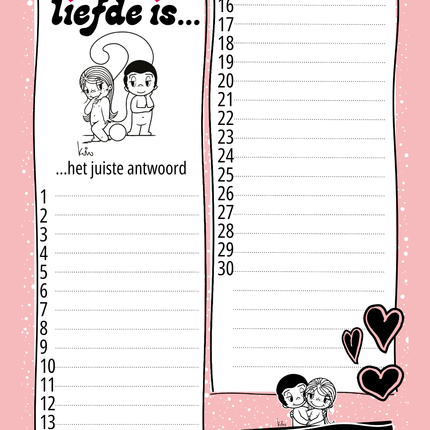 liefde is...
kim
...het juiste antwoord
1
2
3
4
5
6
7
8
9
10
11
12
13
16
17
18
19
20
21
22
23
24
25
26
27
28
29
30
kim